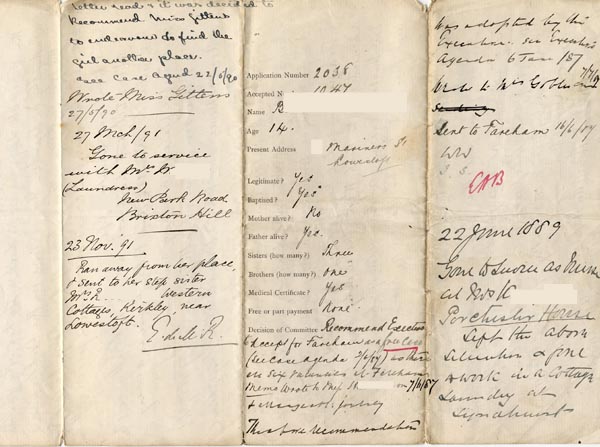 letter read & it was decided to
Recommend Miss Gittens
to endeavour to find the
girl another place.
see case Agend 22/5/90
Wrote Miss Gittens
27/5/90
27 Mch/91
Gone to service
with Mrs W
(Laundress)
New Park Road
Brixton Hill
23 Nov. 91
Ran away from her place,
& sent to her step sister
Mrs L Western
Cottages, Kirkley, near
Lowestoft.
Application Number 2038
Accepted No
Name B
Age 14.
Present Address Mariners St
Lowestoft
Legitimate? Yes
Baptised? Yes
Mother alive? No
Father alive? Yes.
Sisters (how many?) Three
Brothers (how many?) one
Medical Certificate? Yes
Free or part payment None.
Decision of Committee Recommend Executive
to accept for Fareham as a free case
(See case Agenda as there
are six vacancies at Fareham
Memo Wrote to 7/6/87
journey
The above recommendation
was adopted by the
Executive. see Executive
Agenda 6 June /87
Wrote to Mrs 7/6/87
Sent to Fareham 16/6/87
22 June 1889
Gone to Service as Nurse
at Mrs K
Porchester House
Left the above
situation & gone
to work in a Cottage
Laundry at
Lyndhurst